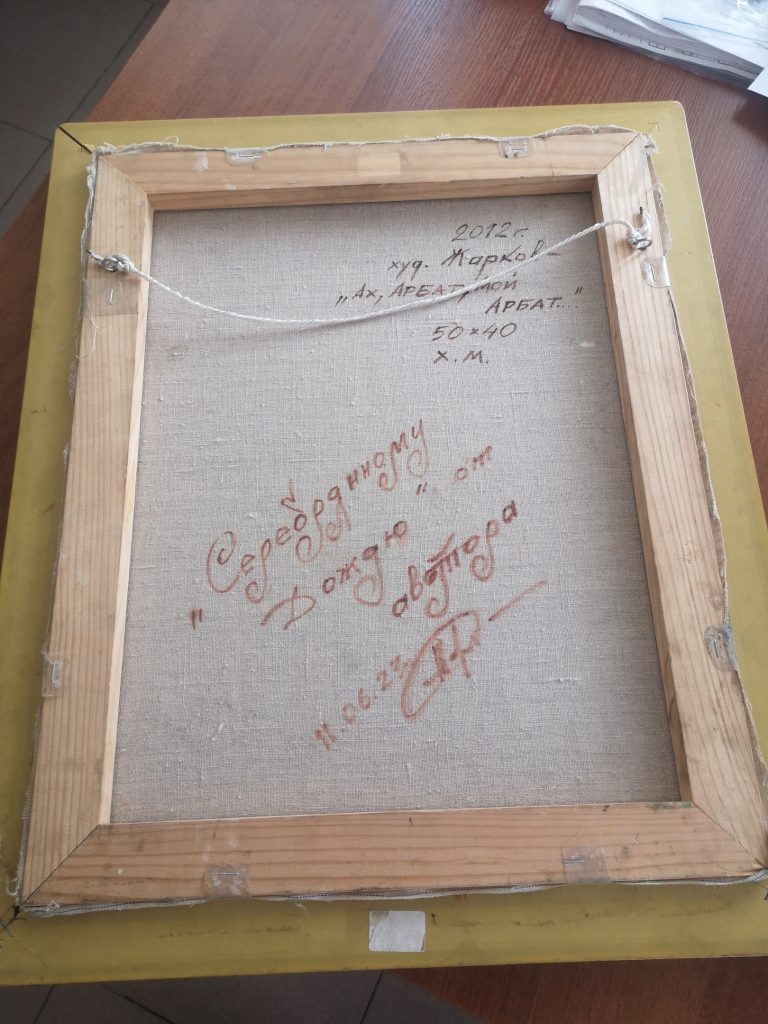 2012г.
худ. Жарков
„Ах, АРБАТ, МОЙ
АРБАТ..."
50×40
х.м.
„Серебрянному
Дождю" от
автора
11.06.23